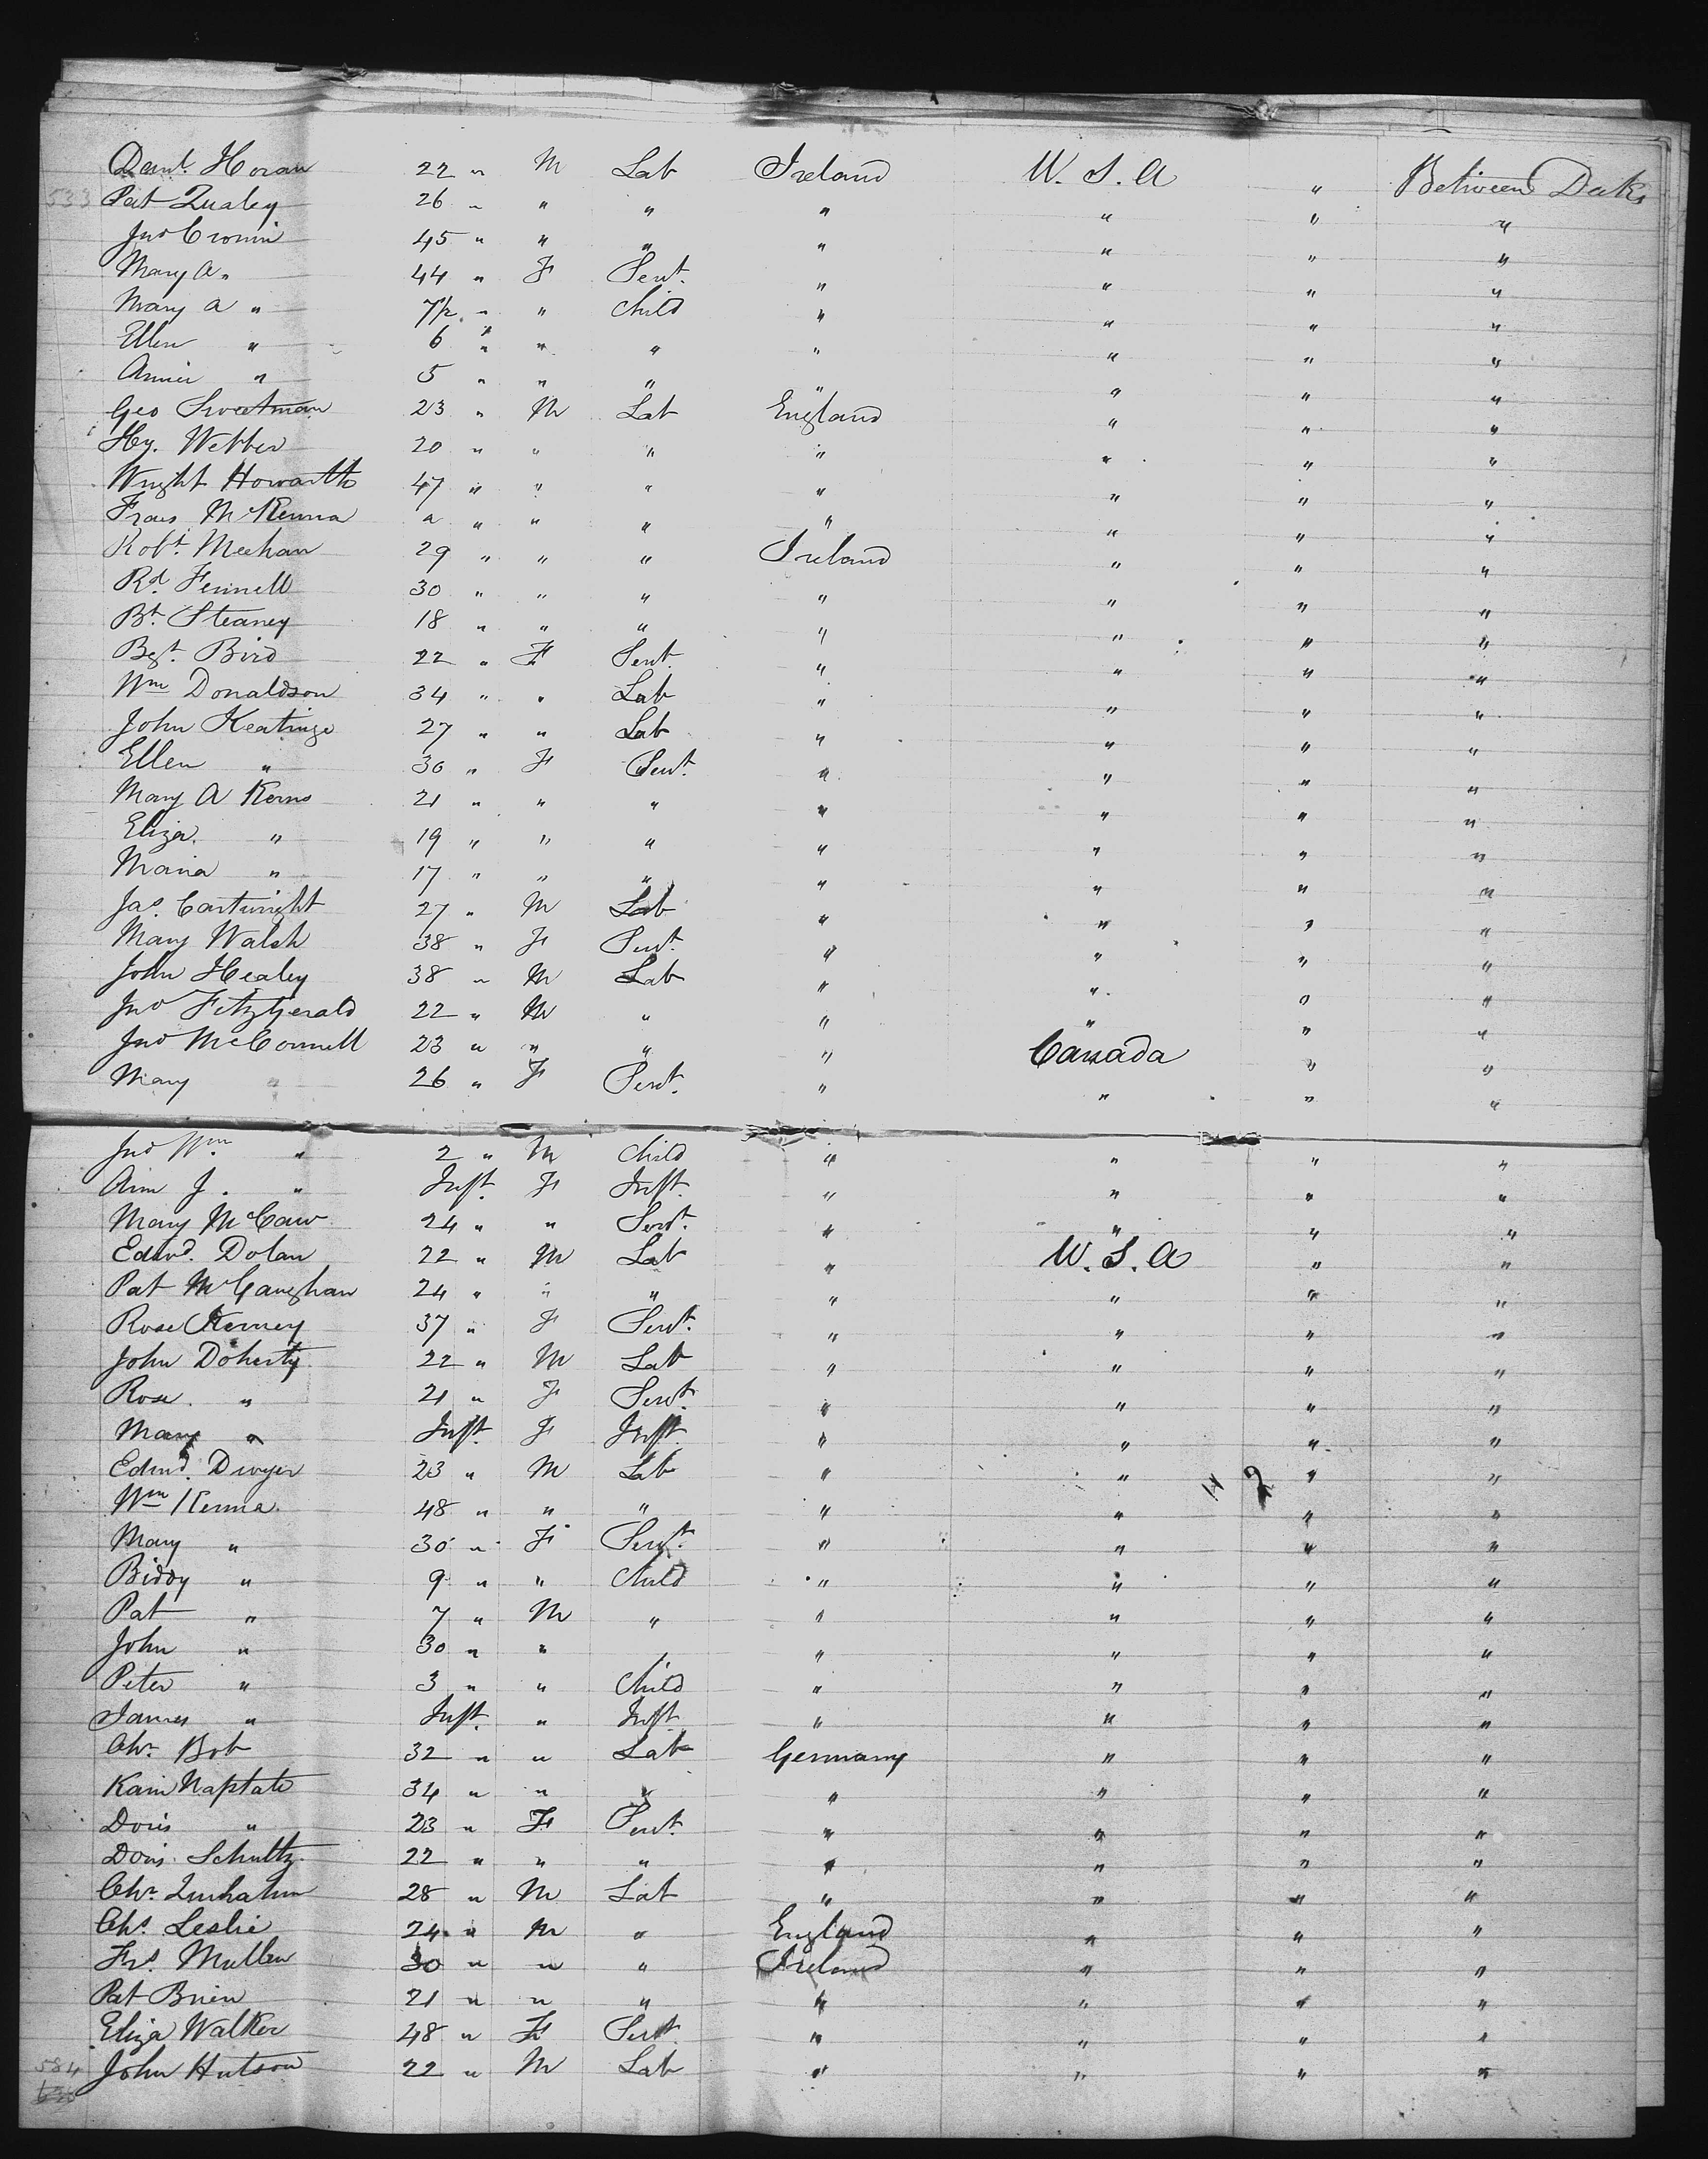 Danl. Horan 22 " M Lab Ireland U.S.A " Between Decks
533 Pat Qualey 26 " " " " " " "
Jno Cronin 45 " " " " " " "
Mary A " 44 " F Sevt. " " " "
Mary A " 7½ " " Child " " " "
Ellen " 6 " " " " " " "
Annie " 5 " " " " " " "
Geo Sweetman 23 " M Lab England " " "
Hy. Webber 20 " " " " " " "
Wright Howarth 47 " " " " " " "
Fras McKenna a " " " " " " "
Robt. Meehan 29 " " " Ireland " " "
Rd. Fennell 30 " " " " " " "
Bt. Steaney 18 " " " " " " "
Bgt. Bird 22 " F Sevt. " " " "
Wm Donaldson 34 " " Lab " " " "
John Keatinge 27 " " Lab " " " "
Ellen " 30 " F Sevt. " " " "
Mary A Kerns 21 " " " " " " "
Eliza " 19 " " " " " " "
Maria " 17 " " " " " " "
Jas. Cartwright 27 " M Lab " " " "
Mary Walsh 38 " F Sevt. " " " "
John Healey 38 " M Lab " " " "
Jno Fitzgerald 22 " M " " " " "
Jno McConnell 23 " " " " Canada " "
Mary " 26 " F Sevt. " " " "
Jno Wm. " 2 " M Child " " " "
Ann J. " Inft. F Inft. " " " "
Mary McCaw 24 " " Sevt. " " " "
Edmd. Dolan 22 " M Lab " U.S.A " "
Pat McGaughan 24 " " " " " " "
Rose Kerney 37 " F Sevt. " " " "
John Doherty 22 " M Lab " " " "
Rose " 21 " F Sevt. " " " "
Mary " Inft. F Inft. " " " "
Edmd. Dwyer 23 " M Lab " " " "
Wm Kenna 48 " " " " " " "
Mary " 30 " F Sevt. " " " "
Biddy " 9 " " Child " " " "
Pat " 7 " M " " " " "
John " 30 " " " " " "
Peter " 3 " " Child " " " "
James " Inft. " Inft " " " "
Chr. Bob 32 " " Lab Germany " " "
Kain Naptate 34 " " " " " " "
Doris " 23 " F Sevt. " " " "
Doris Schultz 22 " " " " " " "
Chr. 28 " M Lab " " " "
Chs. Leslie 24 " M " England " " "
Frs. Mullen 30 " " " Ireland " " "
Pat Brien 21 " " " " " " "
Eliza Walker 48 " F Sevt " " " "
584 John Hutson 22 " M Lab " " " "